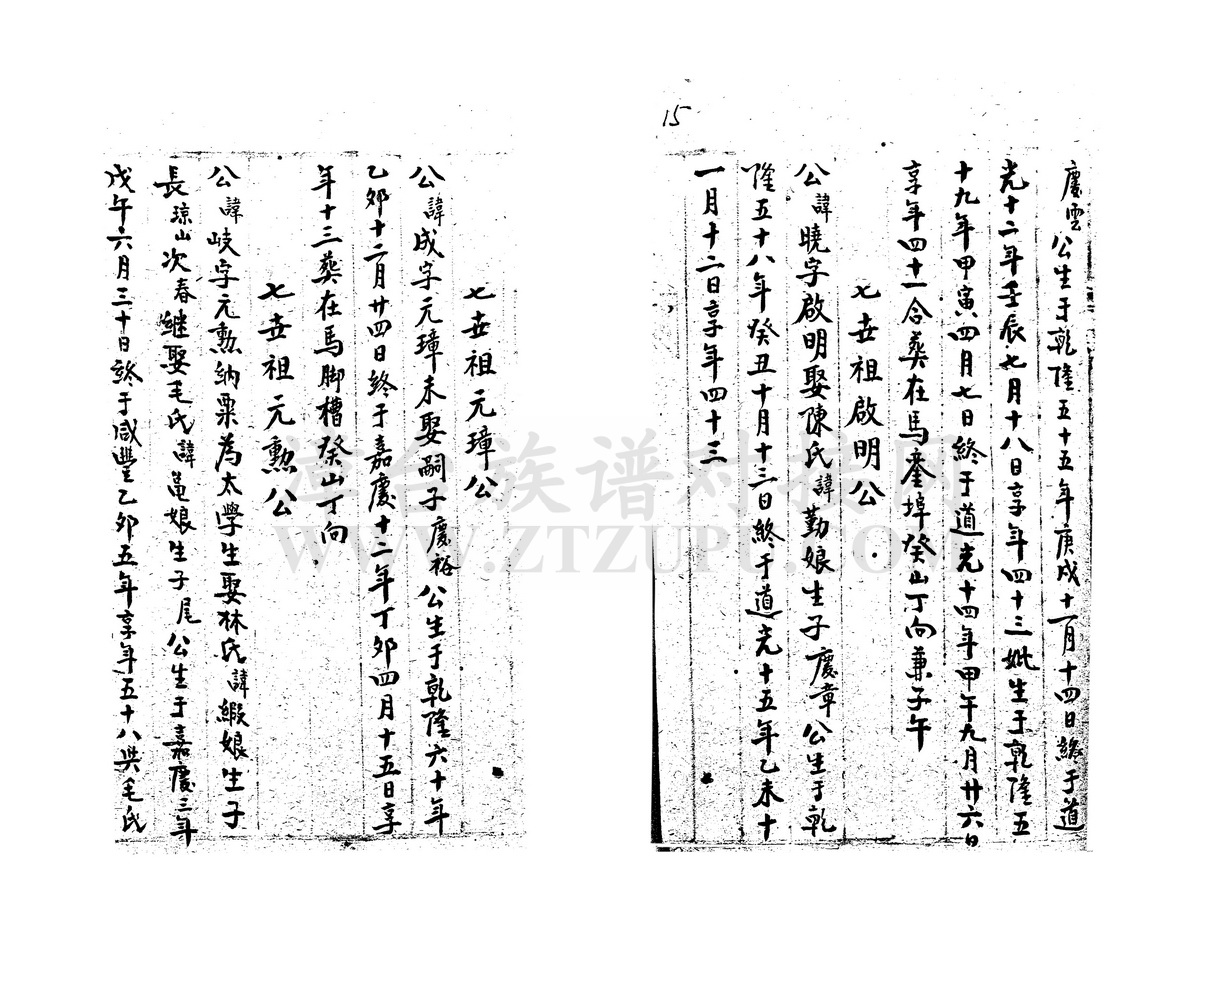 15
慶雲公生于乾隆五十五年庚戌十一月十四日終于道
光十二年壬辰七月十八日享年四十三妣生于乾隆五
十九年甲寅四月七日終于道光十四年甲午九月廿六日
享年四十一合葬在馬埔癸山丁向兼子午
七世祖啟明公
公諱曉字啟明娶陳氏諱勤娘生子慶章公生于乾
隆五十八年癸丑十月十三日終于道光十五年乙未十
一月十二日享年四十三
七世祖元璋公
公諱成字元璋未娶嗣子慶裕公生于乾隆六十年
乙卯十二月廿四日終于嘉慶十二年丁卯四月十五日享
年十三葬在馬脚槽癸山丁向
七世祖元勳公
公諱岐字元勳納粟為太學生娶林氏諱緞娘生子
長琼山次春继娶毛氏諱黾娘生子尾公生于嘉慶三年
戊午六月三十日終于咸豐乙卯五年享年五十八與毛氏
漳台族谱对接网
WWW.ZTZUPU.COM